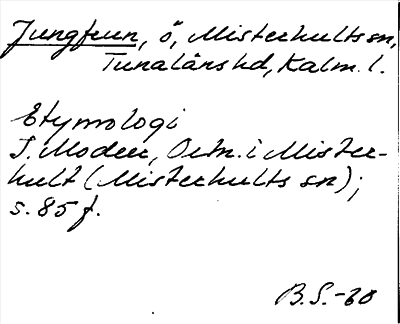 Jungfrun, ö, Misterhults sn,
Tunaläns hd, Kalm. l.
Etymologi
I. Modéer, Ortn. i Mister-
hult (Misterhults sn);
s. 85 f.
B.S.-60